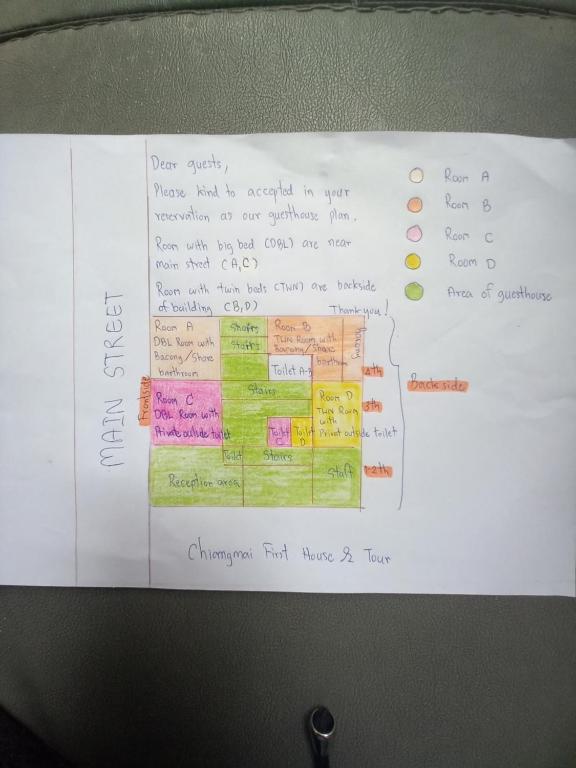 Dear guests,
Please kind to accepted in your
reservation as our guesthouse plan.
Room with big bed (DBL) are near
main street (A,C)
Room with twin beds (TWN) are backside
of building (B,D)
Thank you!
Room A
Room B
Room C
Room D
Area of guesthouse
MAIN STREET
Frontside
Room A
DBL Room with
Bacony/Share
barthroom
Stairs
Stairs
Room B
TWN Room with
Bacony/Share
barthroom
Bacony
Toilet A-B
4th
Back side
Stairs
Room C
DBL Room with
Private outside toilet
Toilet
C
Toilet
D
Room D
TWN Room
with
Privat outside toilet
3th
Toilet
Stairs
Reception area
Staff
1-2th
Chiangmai First House & Tour